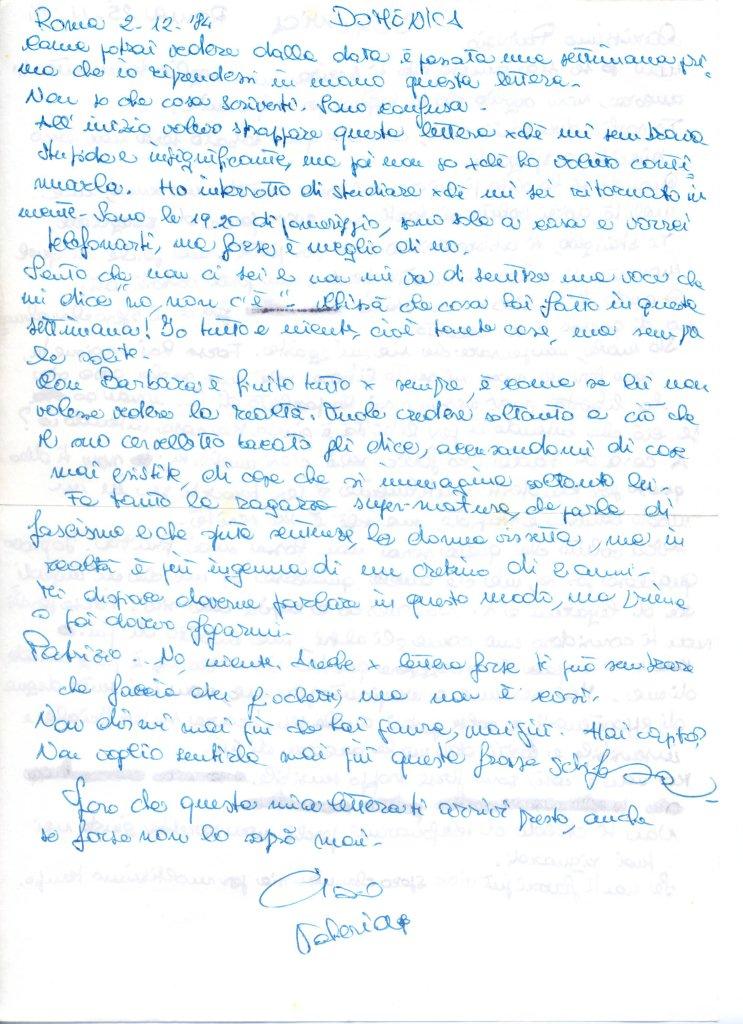 Roma 2-12-'84 DOMENICA
Come potrai vedere dalla data è passata una settimana pri-
ma che io riprendessi in mano questa lettera-
Non so che cosa scriverti. Sono confusa-
All'inizio volevo strappare questa lettera xchè mi sembrava
stupida e insignificante, ma poi non so xchè ho voluto conti-
nuarla. Ho interrotto di studiare xchè mi sei ritornato in
mente- Sono le 19.20 di pomeriggio, sono sola a casa e vorrei
telefonarti, ma forse è meglio di no.
Sento che non ci sei e non mi va di sentire una voce che
mi dice "no, non c'è"- Chissà che cosa hai fatto in questa
settimana! Io tutto e niente, cioè tante cose, ma sempre
le solite.
Con Barbara è finito tutto x sempre, è come se lei non
volesse vedere la realtà. Vuole credere soltanto a ciò che
il suo cervelletto bacato gli dice, accusandomi di cose
mai esistite, di cose che si immagina soltanto lei-
Fa tanto la ragazza super-matura, che parla di
fascismo e che sputa sentenze la donna vissuta, ma in
realtà è più ingenua di un cretino di 2 anni-
Mi dispiace doverne parlare in questo modo, ma
o poi dovevo sfogarmi-
Patrizio... No, niente. Anche x lettera forse ti può sembrare
che faccia dei giochetti, ma non è così.
Non dirmi mai più che hai paura, mai più. Hai capito?
Non voglio sentirla mai più questa frase
Spero che questa mia lettera ti arrivi presto, anche
se forse non lo saprò mai-
Ciao
Valeria